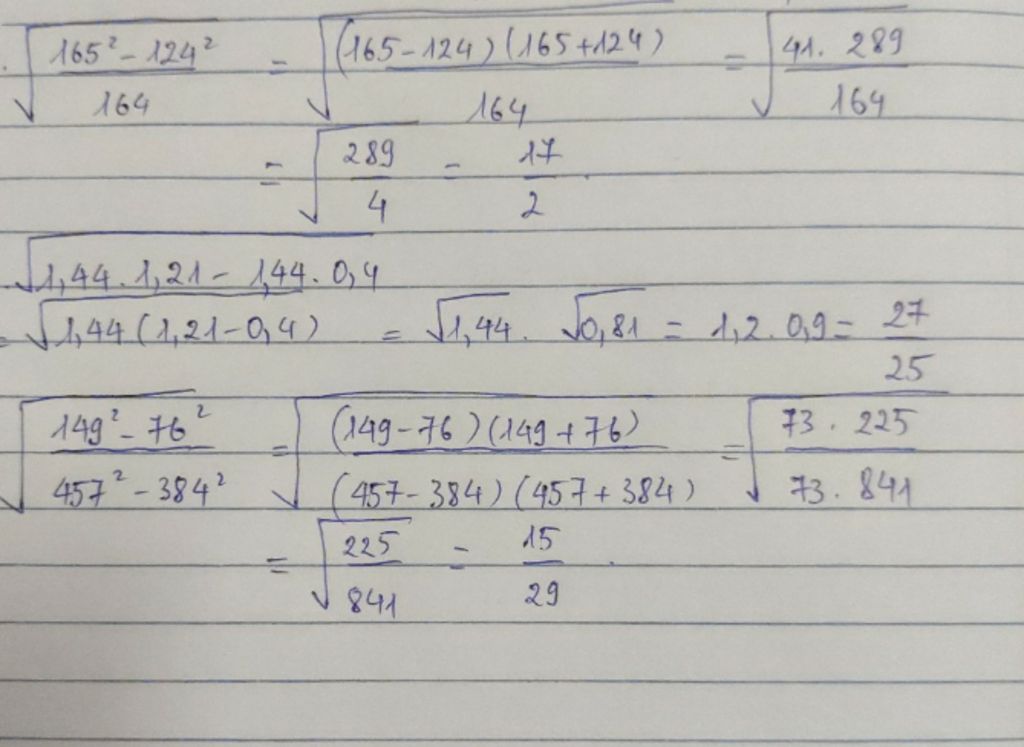 . √((165² - 124²)/164) = √(((165 - 124)(165 + 124))/164) = √((41 . 289)/164)
= √(289/4) = 17/2 .
√(1,44 . 1,21 - 1,44 . 0,4)
= √(1,44 (1,21 - 0,4)) = √1,44 . √0,81 = 1,2 . 0,9 = 27/25
√((149² - 76²)/(457² - 384²)) = √(((149 - 76)(149 + 76))/((457 - 384)(457 + 384))) = √((73 . 225)/(73 . 841))
= √(225/841) = 15/29 .